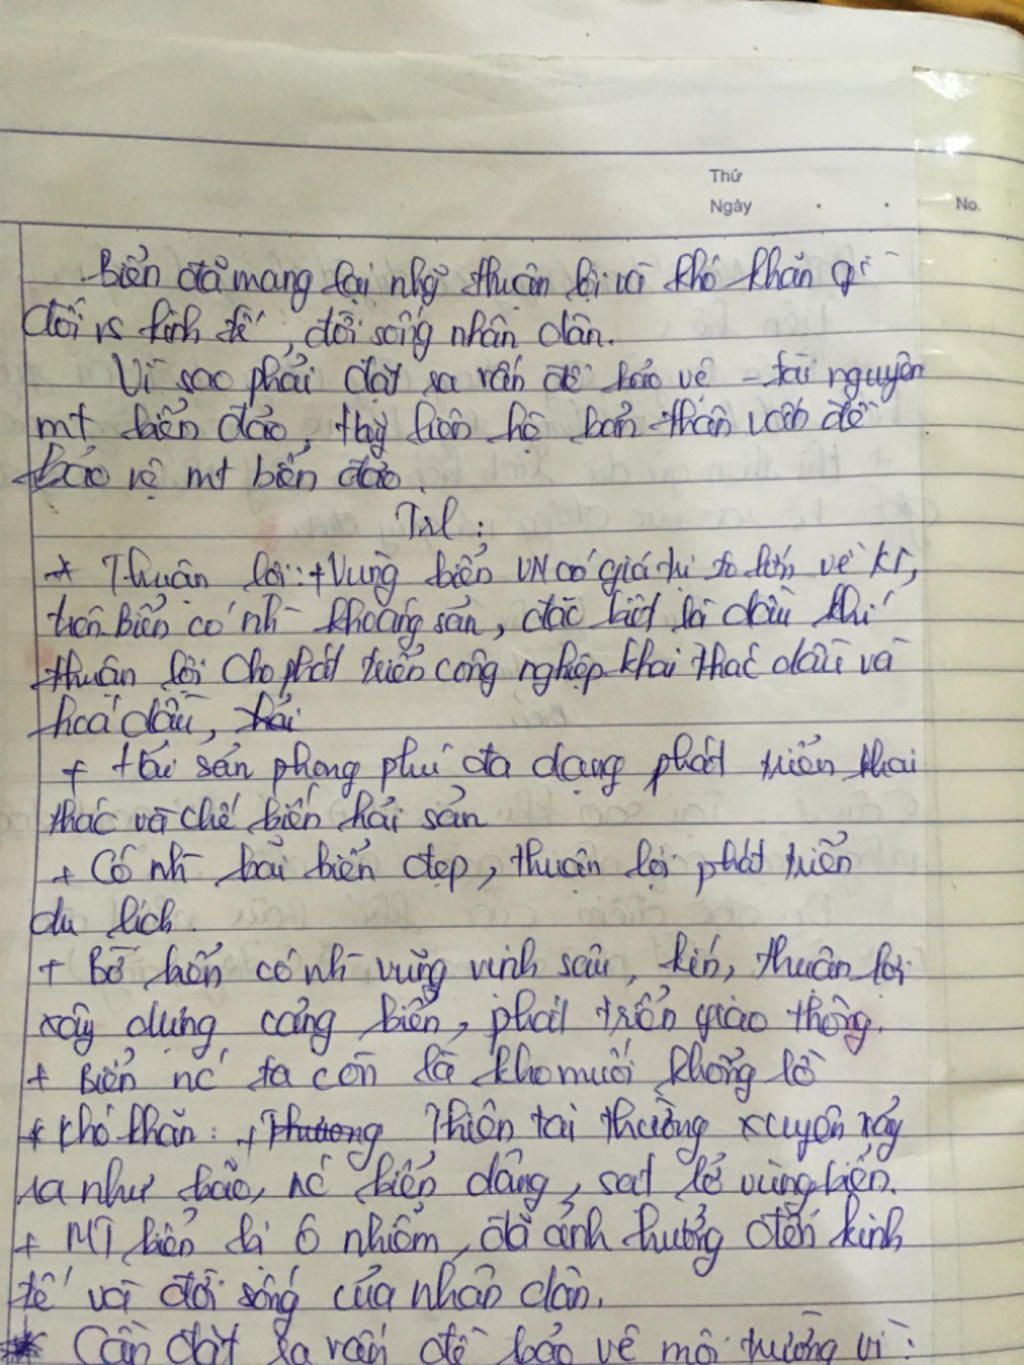 Thứ
Ngày . . No.
Biển đã mang lại nhg̃ thuận lợi và khó khăn gì
đối vs kinh tế, đời sống nhân dân.
Vì sao phải đặt ra vấn đề bảo vệ - tài nguyên
mt biển đảo, hãy liên hệ bản thân vấn đề
bảo vệ mt biển đảo.
Trl :
* Thuận lợi : + Vùng biển VN có giá trị to lớn về KT,
trên Biển có nh~ khoáng sản, đặc biệt là dầu khí
thuận lợi cho phát triển công nghiệp khai thác dầu và
hoá dầu, hải
+ Hải sản phong phú đa dạng phát triển khai
thác và chế biến hải sản
+ Có nh~ bãi biển đẹp, thuận lợi phát triển
du lịch.
+ Bờ biển có nh~ vũng vịnh sâu, kín, thuận lợi
xây dựng cảng biển, phát triển giao thông.
+ Biển nc' ta còn là kho muối khổng lồ
* Khó khăn : + Thương Thiên tai thường xuyên xảy
ra như bão, nc' biển dâng, sạt lở vùng biển.
+ MT biển bị ô nhiễm, đã ảnh hưởng đến kinh
tế và đời sống của nhân dân.
* Cần đặt ra vấn đề bảo vệ môi trường vì :